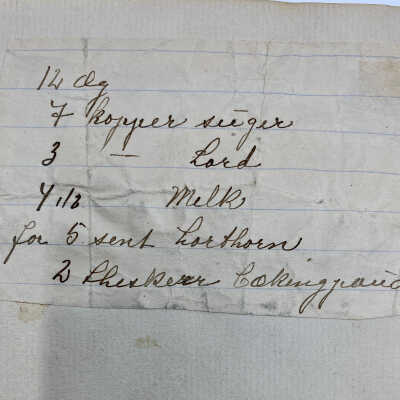 12 Æg
7 kopper suger
3 — Lard
4 1/2 Melk
for 5 sent horthorn
2 theskeer Bækingpaud